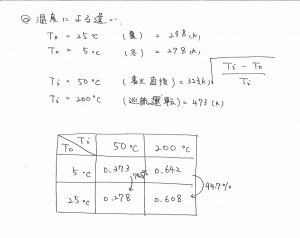 ② 温度による違い、
To = 25℃ (夏) = 298(K)
To = 5℃ (冬) = 278(K)
Ti = 50℃ (着火直後) = 323(K)
Ti - To
Ti
Ti = 200℃ (巡航運転) = 473(K)
Ti
To
50℃ 200℃
5℃ 0.373 0.642
25℃ 0.278 0.608
94.7%